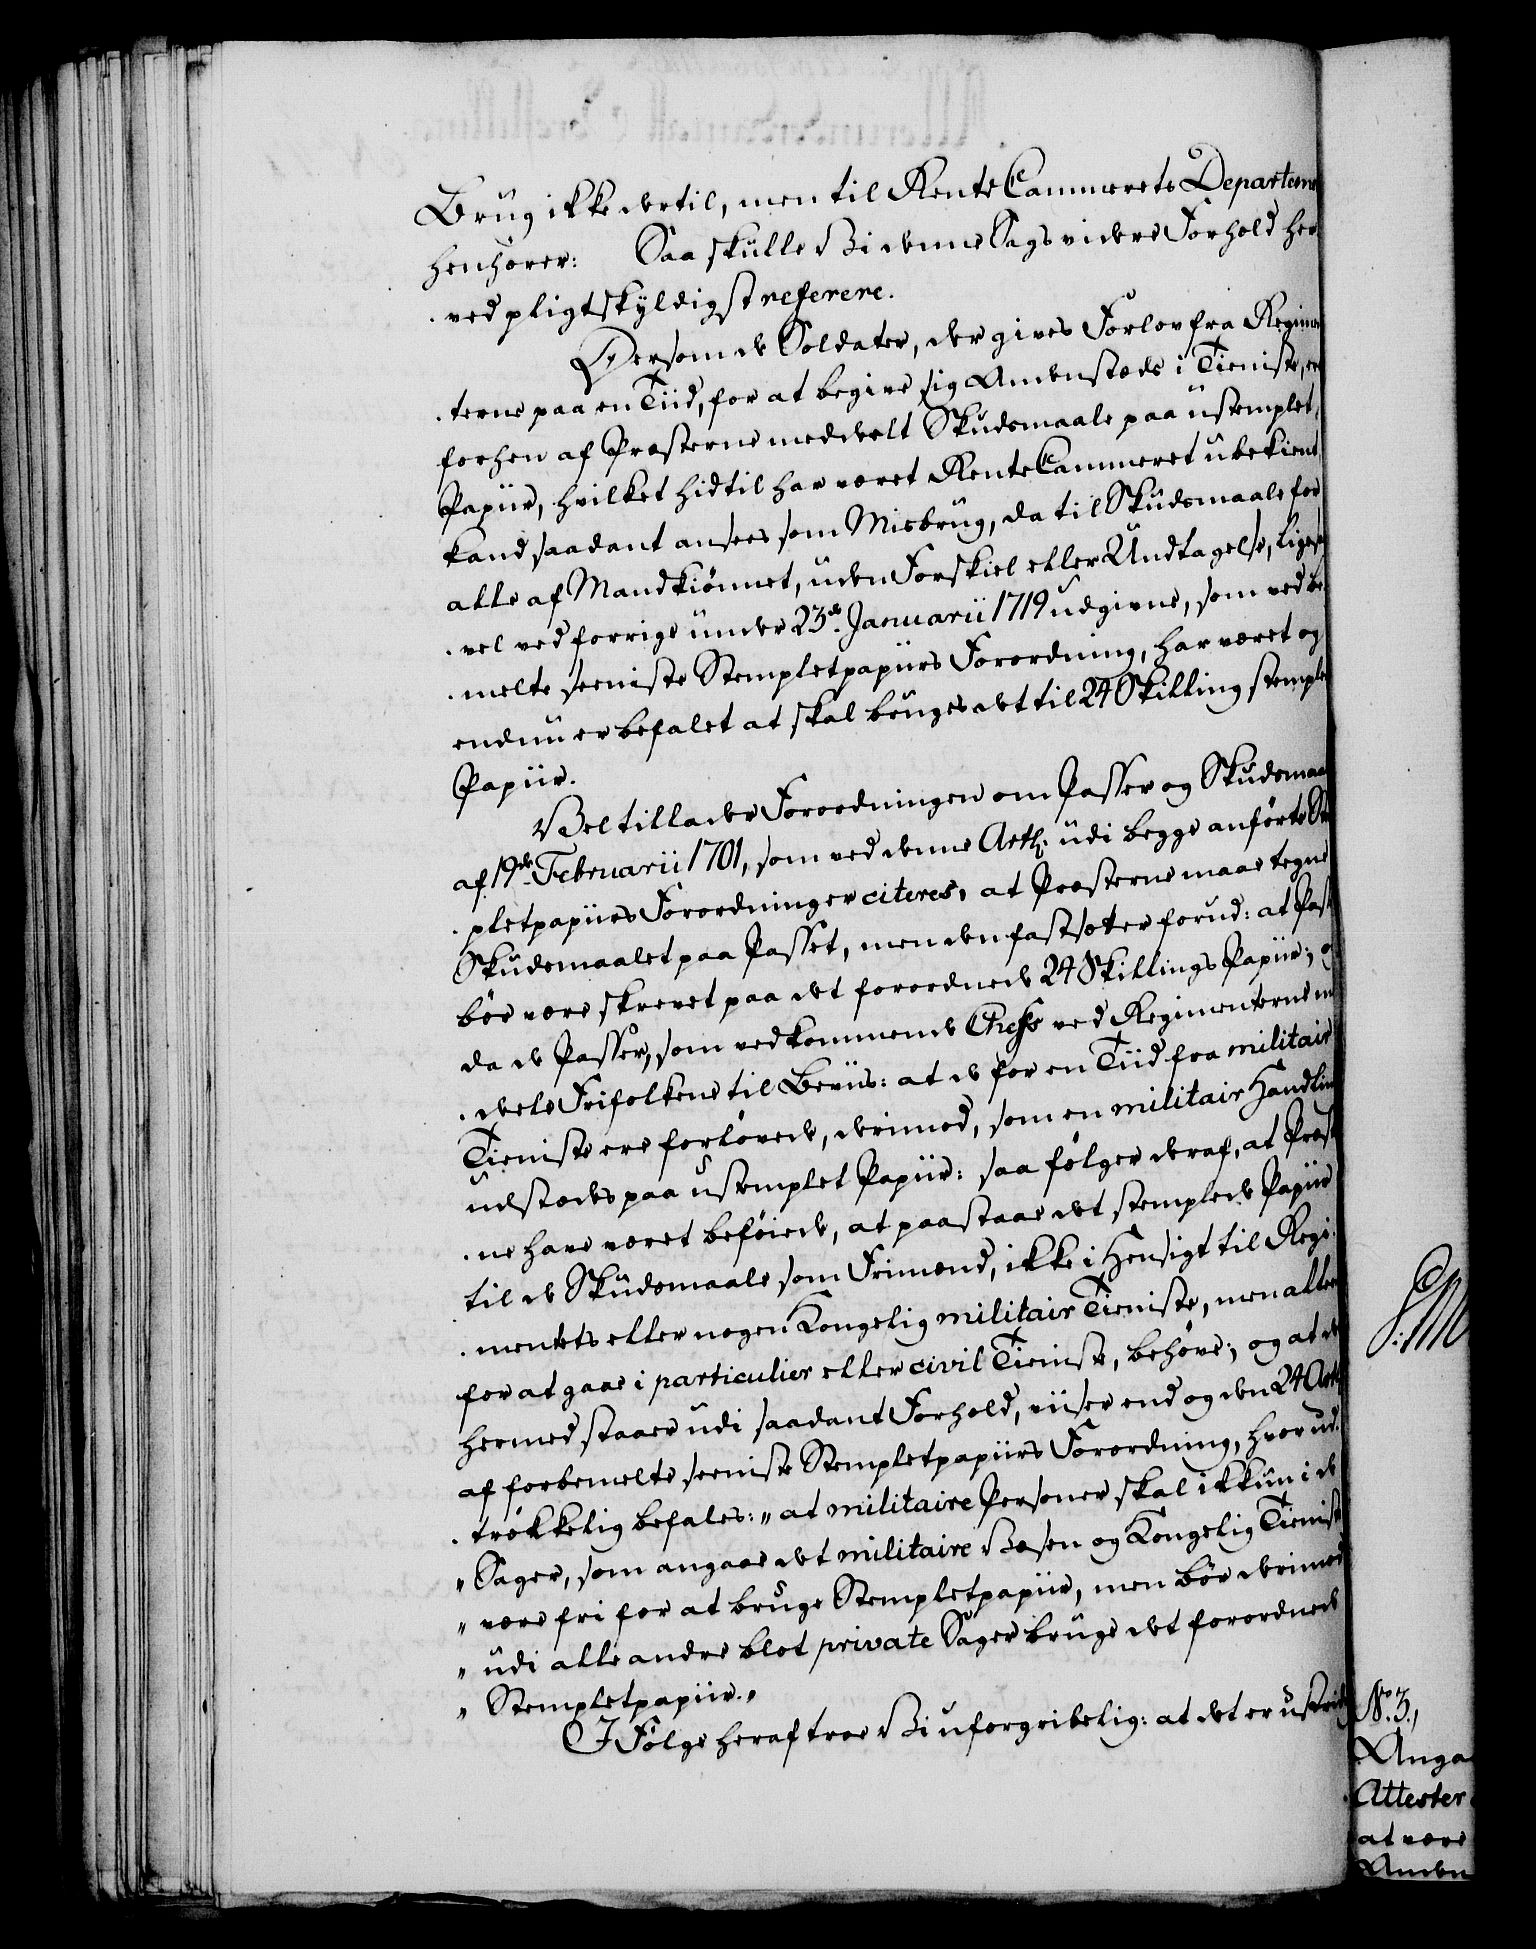 Brug ikke dertil, men til RenteCammerets Departeme
henhører: Saa skulle Vi denne Sags videre Forhold her
ved pligtskyldigst referere.
Dersom de Soldater, der gives Forlov fra Regimen
terne paa en Tiid, for at begive sig Andenstæds i Tieniste, er
forhen af Præsterne meddeelt Skudsmaale paa ustemplet
Papiir, hvilket hidtil har været RenteCammeret ubekient,
kand saadant ansees som Misbrug, da til Skudsmaale for
alle af Mandkiønnet, uden Forskiel eller Undtagelse, ligesaa
vel ved forrige under 23de Januarii 1719 udgivne, som ved be
melte seeniste Stempletpapiirs Forordning, har været og
endnu er befalet at skal bruges det til 24 Skilling stemplede
Papiir.
Vel tillader Forordningen om Passer og Skudsmaal
af 19de Februarii 1701, som ved denne Artl: udi begge anførte Stem
pletpapiirs Forordninger citeres, at Præsterne maae tegne
Skudsmaalet paa Passet, men den fastsætter forud: at Passet
bør være skrevet paa det forordnede 24 Skillings Papiir; og
da de Passer, som vedkommende Chefs ved Regimenterne med
deele Frifolkene til Beviis: at de for en Tiid fra militair
Tieniste ere forløvede, derimod, som en militair Handling
udstædes paa ustemplet Papiir: saa følger deraf, at Præster
ne have været beføiede, at paastaae det stemplede Papiir
til de Skudsmaale som Frimænd, ikke i Hensigt til Regi
mentets eller nogen Kongelig militair Tieniste, men alleene
for at gaae i particulier eller civil Tieniste, behøve; og at det
hermed staaer udi saadant Forhold, viiser end og den 24 Artl:
af forbemelte seeniste Stempletpapiirs Forordning, hvor ud
trøkkelig befales: „at militaire Personer skal ikkun i de
„ Sager, som angaae det militaire Væsen og Kongelig Tieniste
„ være fri for at bruge Stempletpapiir, men bør derimod
„ udi alle andre blot private Sager bruge det forordnede
„ Stempletpapiir.„
I Følge heraf troe Vi uforgribelig: at det er ustridig
No. 3.,
Anga
Attester
at være
Anden